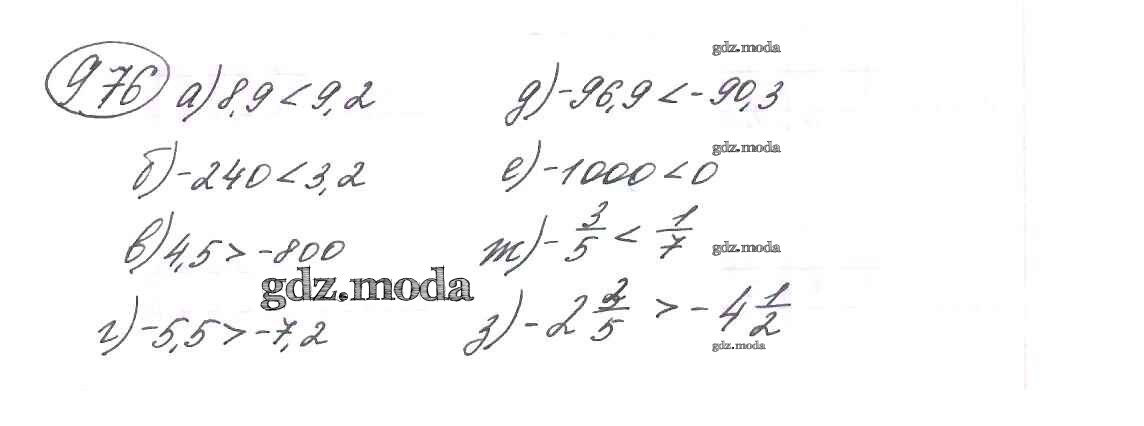 gdz.moda
976 а) 8,9 < 9,2 д) -96,9 < -90,3
gdz.moda
б) -240 < 3,2 е) -1000 < 0
в) 4,5 > -800 ж) -3/5 < 1/7
gdz.moda
gdz.moda
г) -5,5 > -7,2 з) -2 2/5 > -4 1/2
gdz.moda